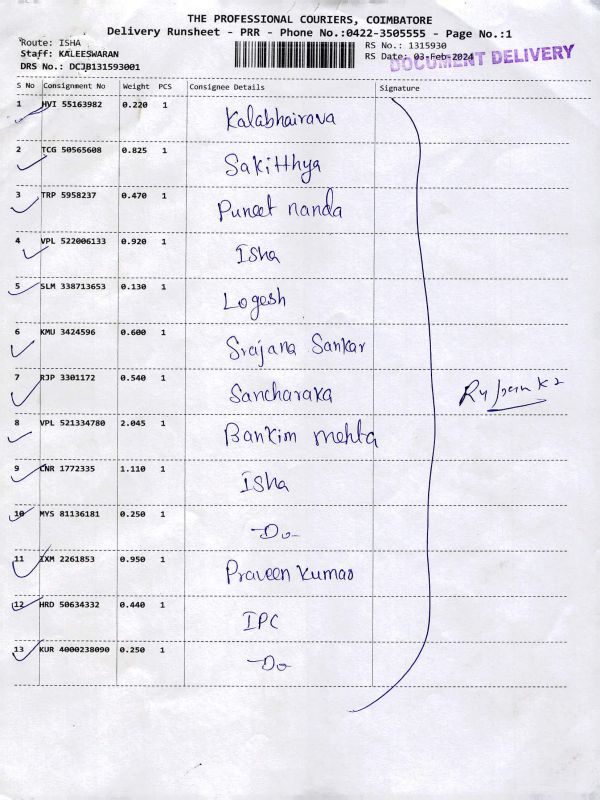 THE PROFESSIONAL COURIERS, COIMBATORE
Delivery Runsheet - PRR - Phone No.:0422-3505555 - Page No.:1
Route: ISHA
RS No.: 1315930
Staff: KALEESWARAN
RS Date: 03-Feb-2024
DOCUMENT DELIVERY
DRS No.: DCJB131593001
S No Consignment No Weight PCS Consignee Details Signature
1 HVI 55163982 0.220 1 Kalabhairava
2 TCG 50565608 0.825 1 Sakitthya
3 TRP 5958237 0.470 1 Puneet nanda
4 VPL 522006133 0.920 1 Isha
5 SLM 338713653 0.130 1 Logesh
6 KMU 3424596 0.600 1 Srajana Sankar
7 RJP 3301172 0.540 1 Sancharaka
8 VPL 521334780 2.045 1 Bankim mehta
9 CNR 1772335 1.110 1 Isha
10 MYS 81136181 0.250 1 -Do-
11 IXM 2261853 0.950 1 Praveen Kumar
12 HRD 50634332 0.440 1 IPC
13 KUR 4000238090 0.250 1 -Do